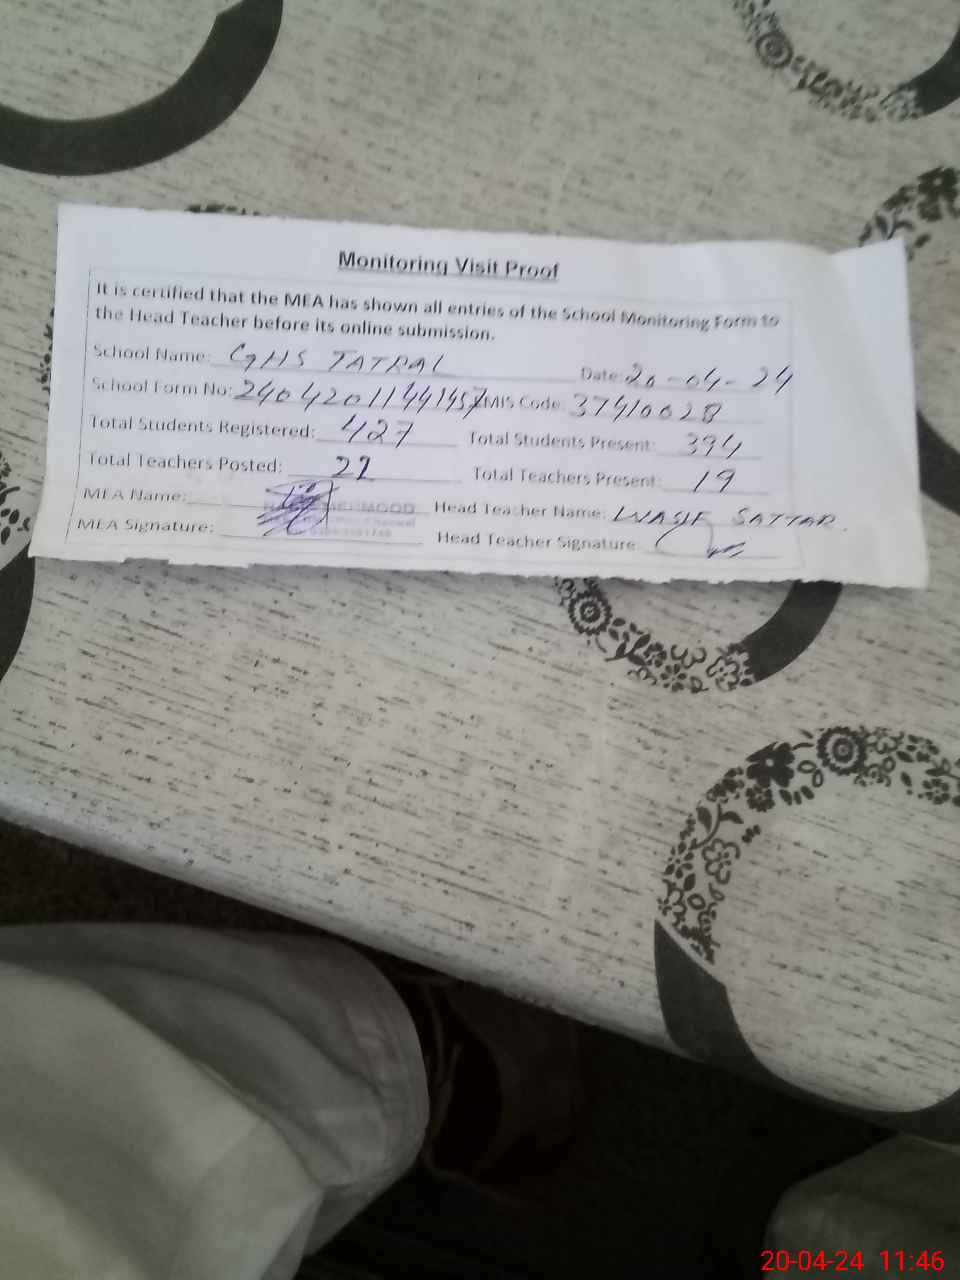 Monitoring Visit Proof
It is certified that the MEA has shown all entries of the School Monitoring Form to
the Head Teacher before its online submission.
School Name: GHS TATRAL Date: 20-04-24
School Form No: MIS Code: 37410028
Total Students Registered: 427 Total Students Present: 394
Total Teachers Posted: 22 Total Teachers Present: 19
MEA Name: Head Teacher Name: WASIF SATTAR.
MEA Signature: Head Teacher Signature
20-04-24 11:46